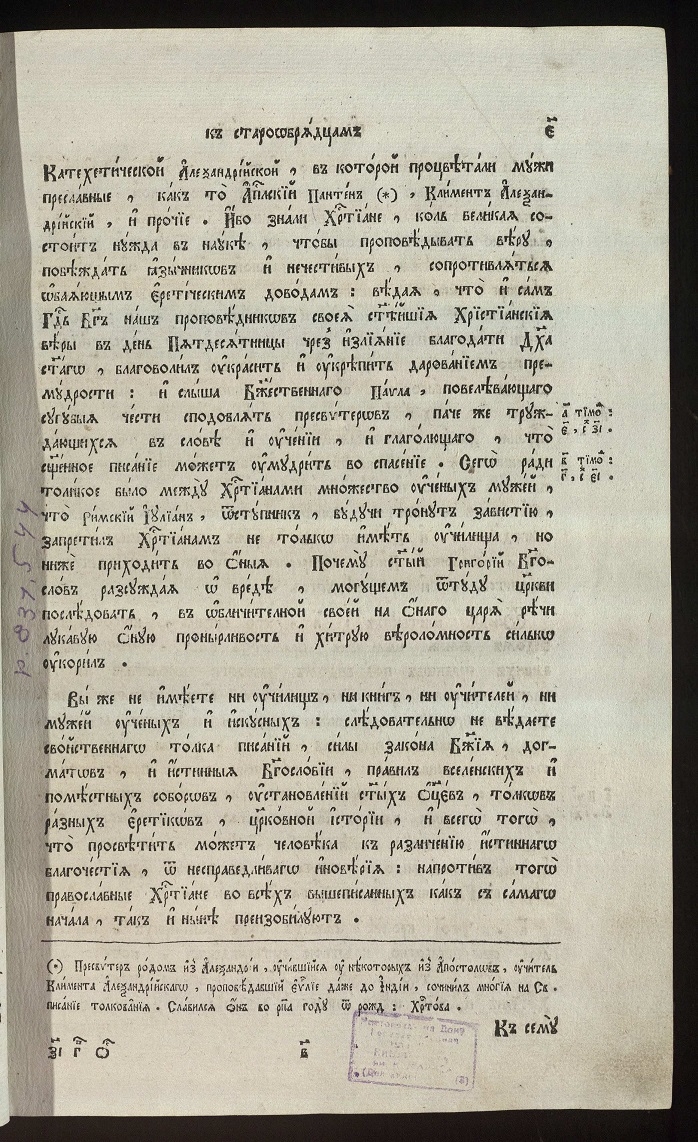 къ старѡѡбрѧ́дцамъ є҃
Катехети́ческой Але҆ѯандрі́йской , въ кото́рой процвѣта́ли мꙋ́жи
пресла́вные , ка́къ то̀ А҆п҃лскїй Панте́нъ (*) , Кли́ментъ А҆леѯан-
дрі́йскїй , и҆ про́чїе . И҆́бо зна́ли Хрⷭ҇тїа́не , ко́ль вели́каѧ со-
стои́тъ нꙋ́жда въ наꙋ́кѣ , что́бы проповѣ́дывать вѣ́рꙋ ,
побѣжда́ть ꙗ҆зы́чникѡвъ и҆ нечести́выхъ , сопротивлѧ́тьсѧ
ѡ҆баѧ́ющымъ є҆рети́ческимъ до́водамъ : вѣ́даѧ , что̀ и҆ са́мъ
Гдⷭ҇ь Бг҃ъ на́шъ проповѣ́дникѡвъ своеѧ̀ ст҃ѣ́йшїѧ Хрїстїа́нскїѧ
вѣ́ры въ де́нь Пѧтдесѧ́тницы чрез̾ и҆злїѧ́нїе благода́ти Дх҃а
ст҃а́гѡ , благоволи́лъ ᲂу҆кра́сить и҆ ᲂу҆крѣпи́ть дарова́нїемъ пре-
мꙋ́дрости : и҆ слы́ша Бж҃е́ственнаго Па́ѵла , повелѣва́ющаго
сꙋгꙋ́быѧ че́сти сподоблѧ́ть пресвѵ́терѡвъ , па́че же трꙋж-
да́ющихсѧ въ сло́вѣ и҆ ᲂу҆че́нїи , и҆ глаго́лющаго , что̀
сщ҃е́нное писа́нїе мо́жетъ ᲂу҆мꙋдри́ть во спасе́нїе . Сегѡ̀ ра́ди
толи́кое бы́ло междꙋ̀ Хрⷭ҇тїа́нами мно́жество ᲂу҆че́ныхъ мꙋже́й ,
что̀ ри́мскїй І҆ꙋлїа́нъ , ѿстꙋ́пникъ , бꙋ́дꙋчи тро́нꙋтъ за́вистїю ,
запрети́лъ Хрⷭ҇тїа́намъ не то́лькѡ и҆мѣ́ть ᲂу҆чи́лища , но
нижѐ приходи́ть во ѻ҆́ныѧ . Почемꙋ̀ ст҃ы́й Григо́рїй Бг҃о-
сло́въ разсꙋжда́ѧ ѡ҆ вре́дѣ , могꙋ́щемъ ѿтꙋ́дꙋ цр҃кви
послѣ́довать , въ ѡ҆бличи́телной свое́й на ѻ҆́наго царѧ̀ рѣ́чи
лꙋка́вꙋю ѻ҆́нꙋю проны́рливость и҆ хи́трꙋю вѣроло́мность си́льнѡ
ᲂу҆кори́лъ .
Вы́ же не и҆мѣ́ете ни ᲂу҆чи́лищъ , ни кни́гъ , ни ᲂу҆чи́телей , ни
мꙋже́й ᲂу҆че́ныхъ и҆ и҆скꙋ́сныхъ : слѣ́довательнѡ не вѣ́даете
сво́йственнагѡ то́лка писа́нїй , си́лы зако́на Бж҃їѧ , дог-
ма́тѡвъ , и҆ и҆́стинныѧ Бг҃осло́вїи , пра́вилъ вселе́нскихъ и҆
помѣ́стныхъ собо́рѡвъ , ᲂу҆становле́нїй ст҃ы́хъ ѻ҆ц҃є́въ , то́лкѡвъ
ра́зныхъ є҆рети́кѡвъ , цр҃ко́вной і҆сто́рїи , и҆ всегѡ̀ тогѡ̀ ,
что̀ просвѣти́ть мо́жетъ человѣ́ка къ различе́нїю и҆́стиннагѡ
благоче́стїѧ , ѿ несправедли́вагѡ и҆новѣ́рїѧ : напроти́въ тогѡ̀
правосла́вные Хрⷭ҇тїа́не во всѣ́хъ вышепи́санныхъ ка́къ съ са́магѡ
нача́ла , та́къ и҆ ны́нѣ преизоби́лꙋютъ .
а҃ тїмоѳ :
є҃ , с҃ з҃і .
в҃ тїмоѳ :
г҃ , с҃ є҃і .
(*) Пресвѵ́теръ ро́домъ и҆з̾ А҆леѯандрі́и , ᲂу҆чи́вшїйсѧ ᲂу҆ нѣ́которыхъ и҆з̾ А҆по́столѡвъ , ᲂу҆чи́тель
Кли́мента А҆леѯандрі́йскагѡ , проповѣ́давшїй є҆ѵⷢ҇лїе да́же до І҆нді́и , сочини́лъ мнѡ́гїѧ на Св .
писа́нїе толкова́нїѧ . Сла́вилсѧ ѻ҆́нъ во рп҃а годꙋ̀ ѿ рожд : Хрⷭ҇то́ва .
Къ семꙋ̀
з҃і г҃ ѻ҃ в҃